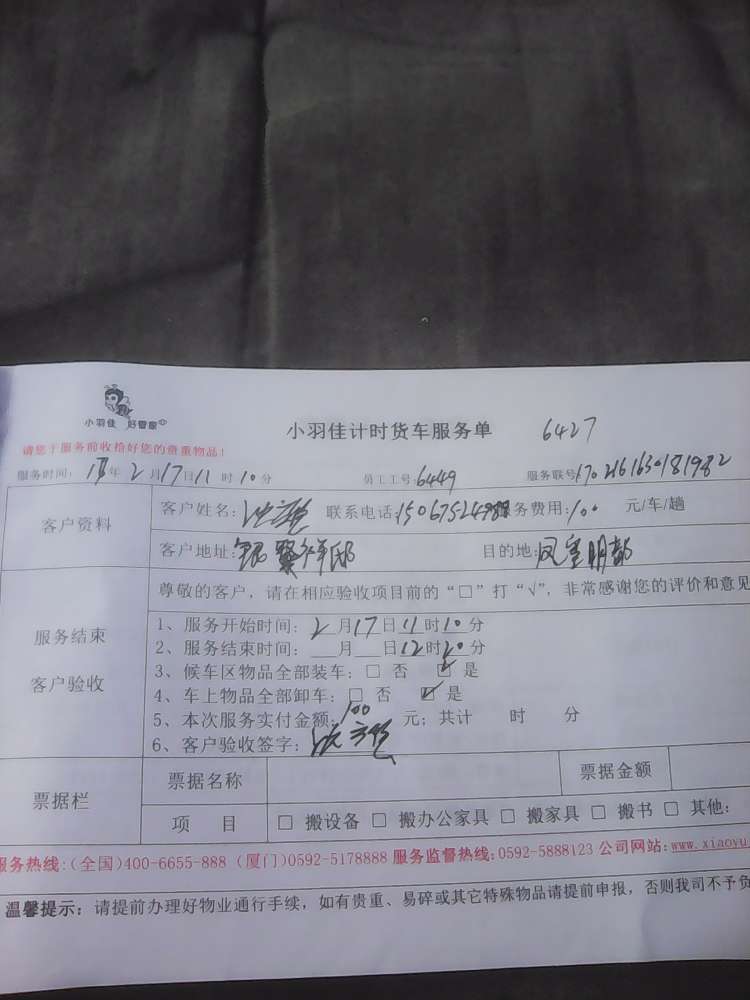 小羽佳 好管家
小羽佳计时货车服务单 6427
请您于服务前收拾好您的贵重物品!
服务时间: 年 2 月 17 日 11 时 10 分 员工工号: 6449 服务联号: 1702161630181982
客户资料
客户姓名: 联系电话: 务费用: 100 元/车/趟
客户地址: 目的地: 凤凰明都
尊敬的客户,请在相应验收项目前的“□”打“√”,非常感谢您的评价和意见
服务结束
客户验收
1、服务开始时间: 2 月 17 日 11 时 10 分
2、服务结束时间: 月 日 12 时 20 分
3、候车区物品全部装车: □ 否 ☑ 是
4、车上物品全部卸车: □ 否 ☑ 是
5、本次服务实付金额: 100 元; 共计 时 分
6、客户验收签字:
票据栏
票据名称 票据金额
项 目 □ 搬设备 □ 搬办公家具 □ 搬家具 □ 搬书 □ 其他:
服务热线:(全国)400-6655-888 (厦门)0592-5178888 服务监督热线:0592-5888123 公司网站:www.xiaoyu
温馨提示: 请提前办理好物业通行手续,如有贵重、易碎或其它特殊物品请提前申报,否则我司不予负